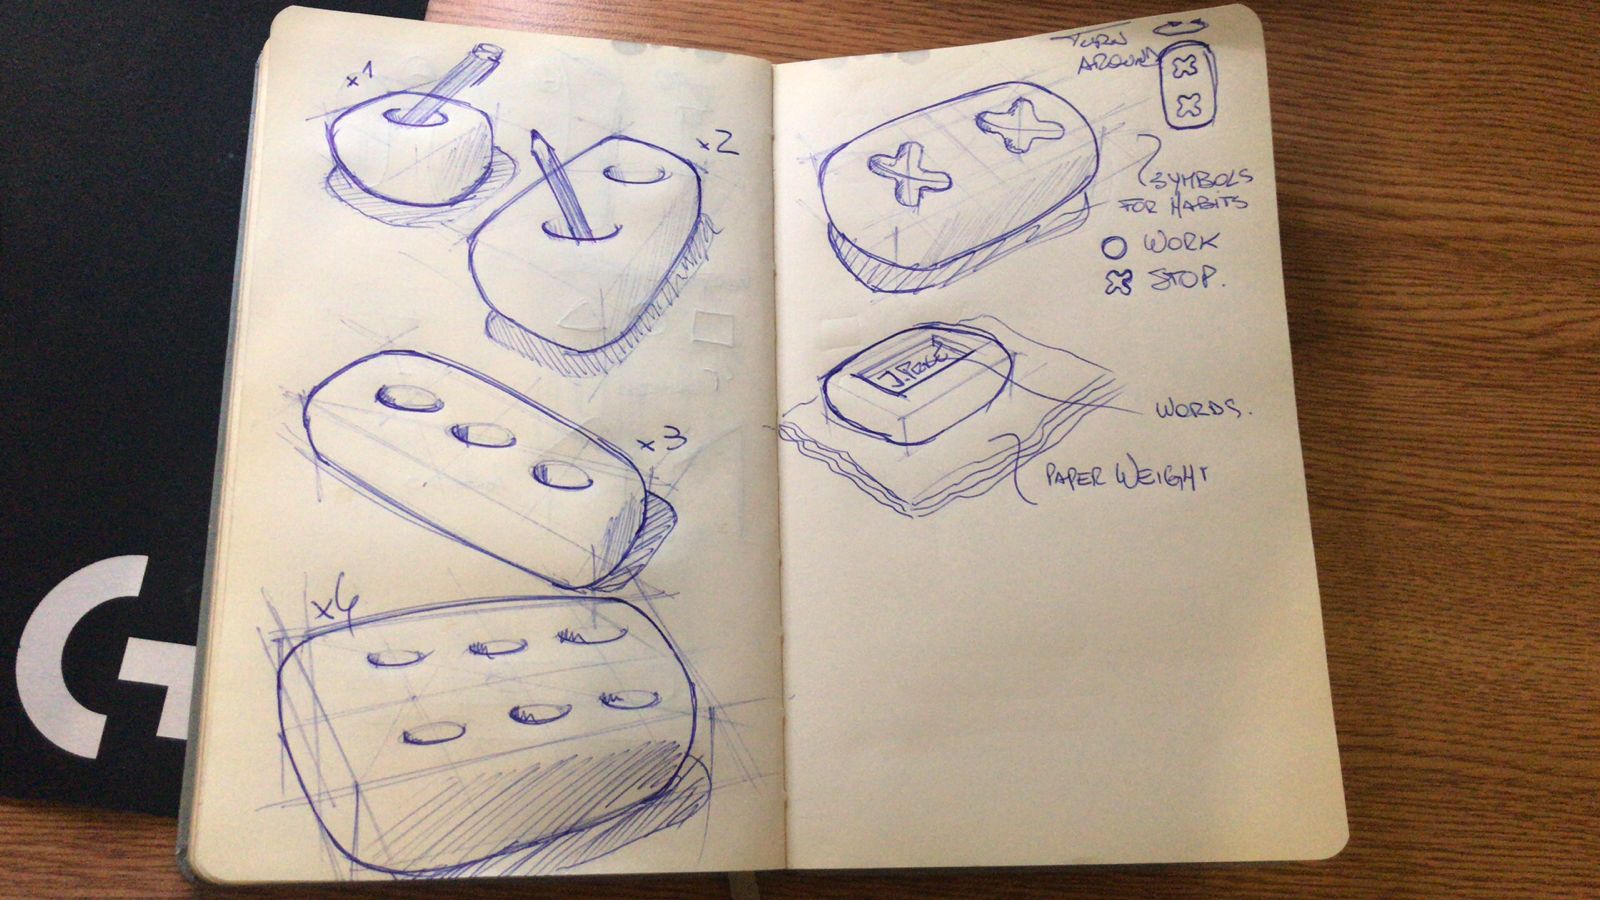 x1
x2
x3
x6
TURN
AROUND
SYMBOLS
FOR HABITS
WORK
STOP.
WORDS.
PAPER WEIGHT